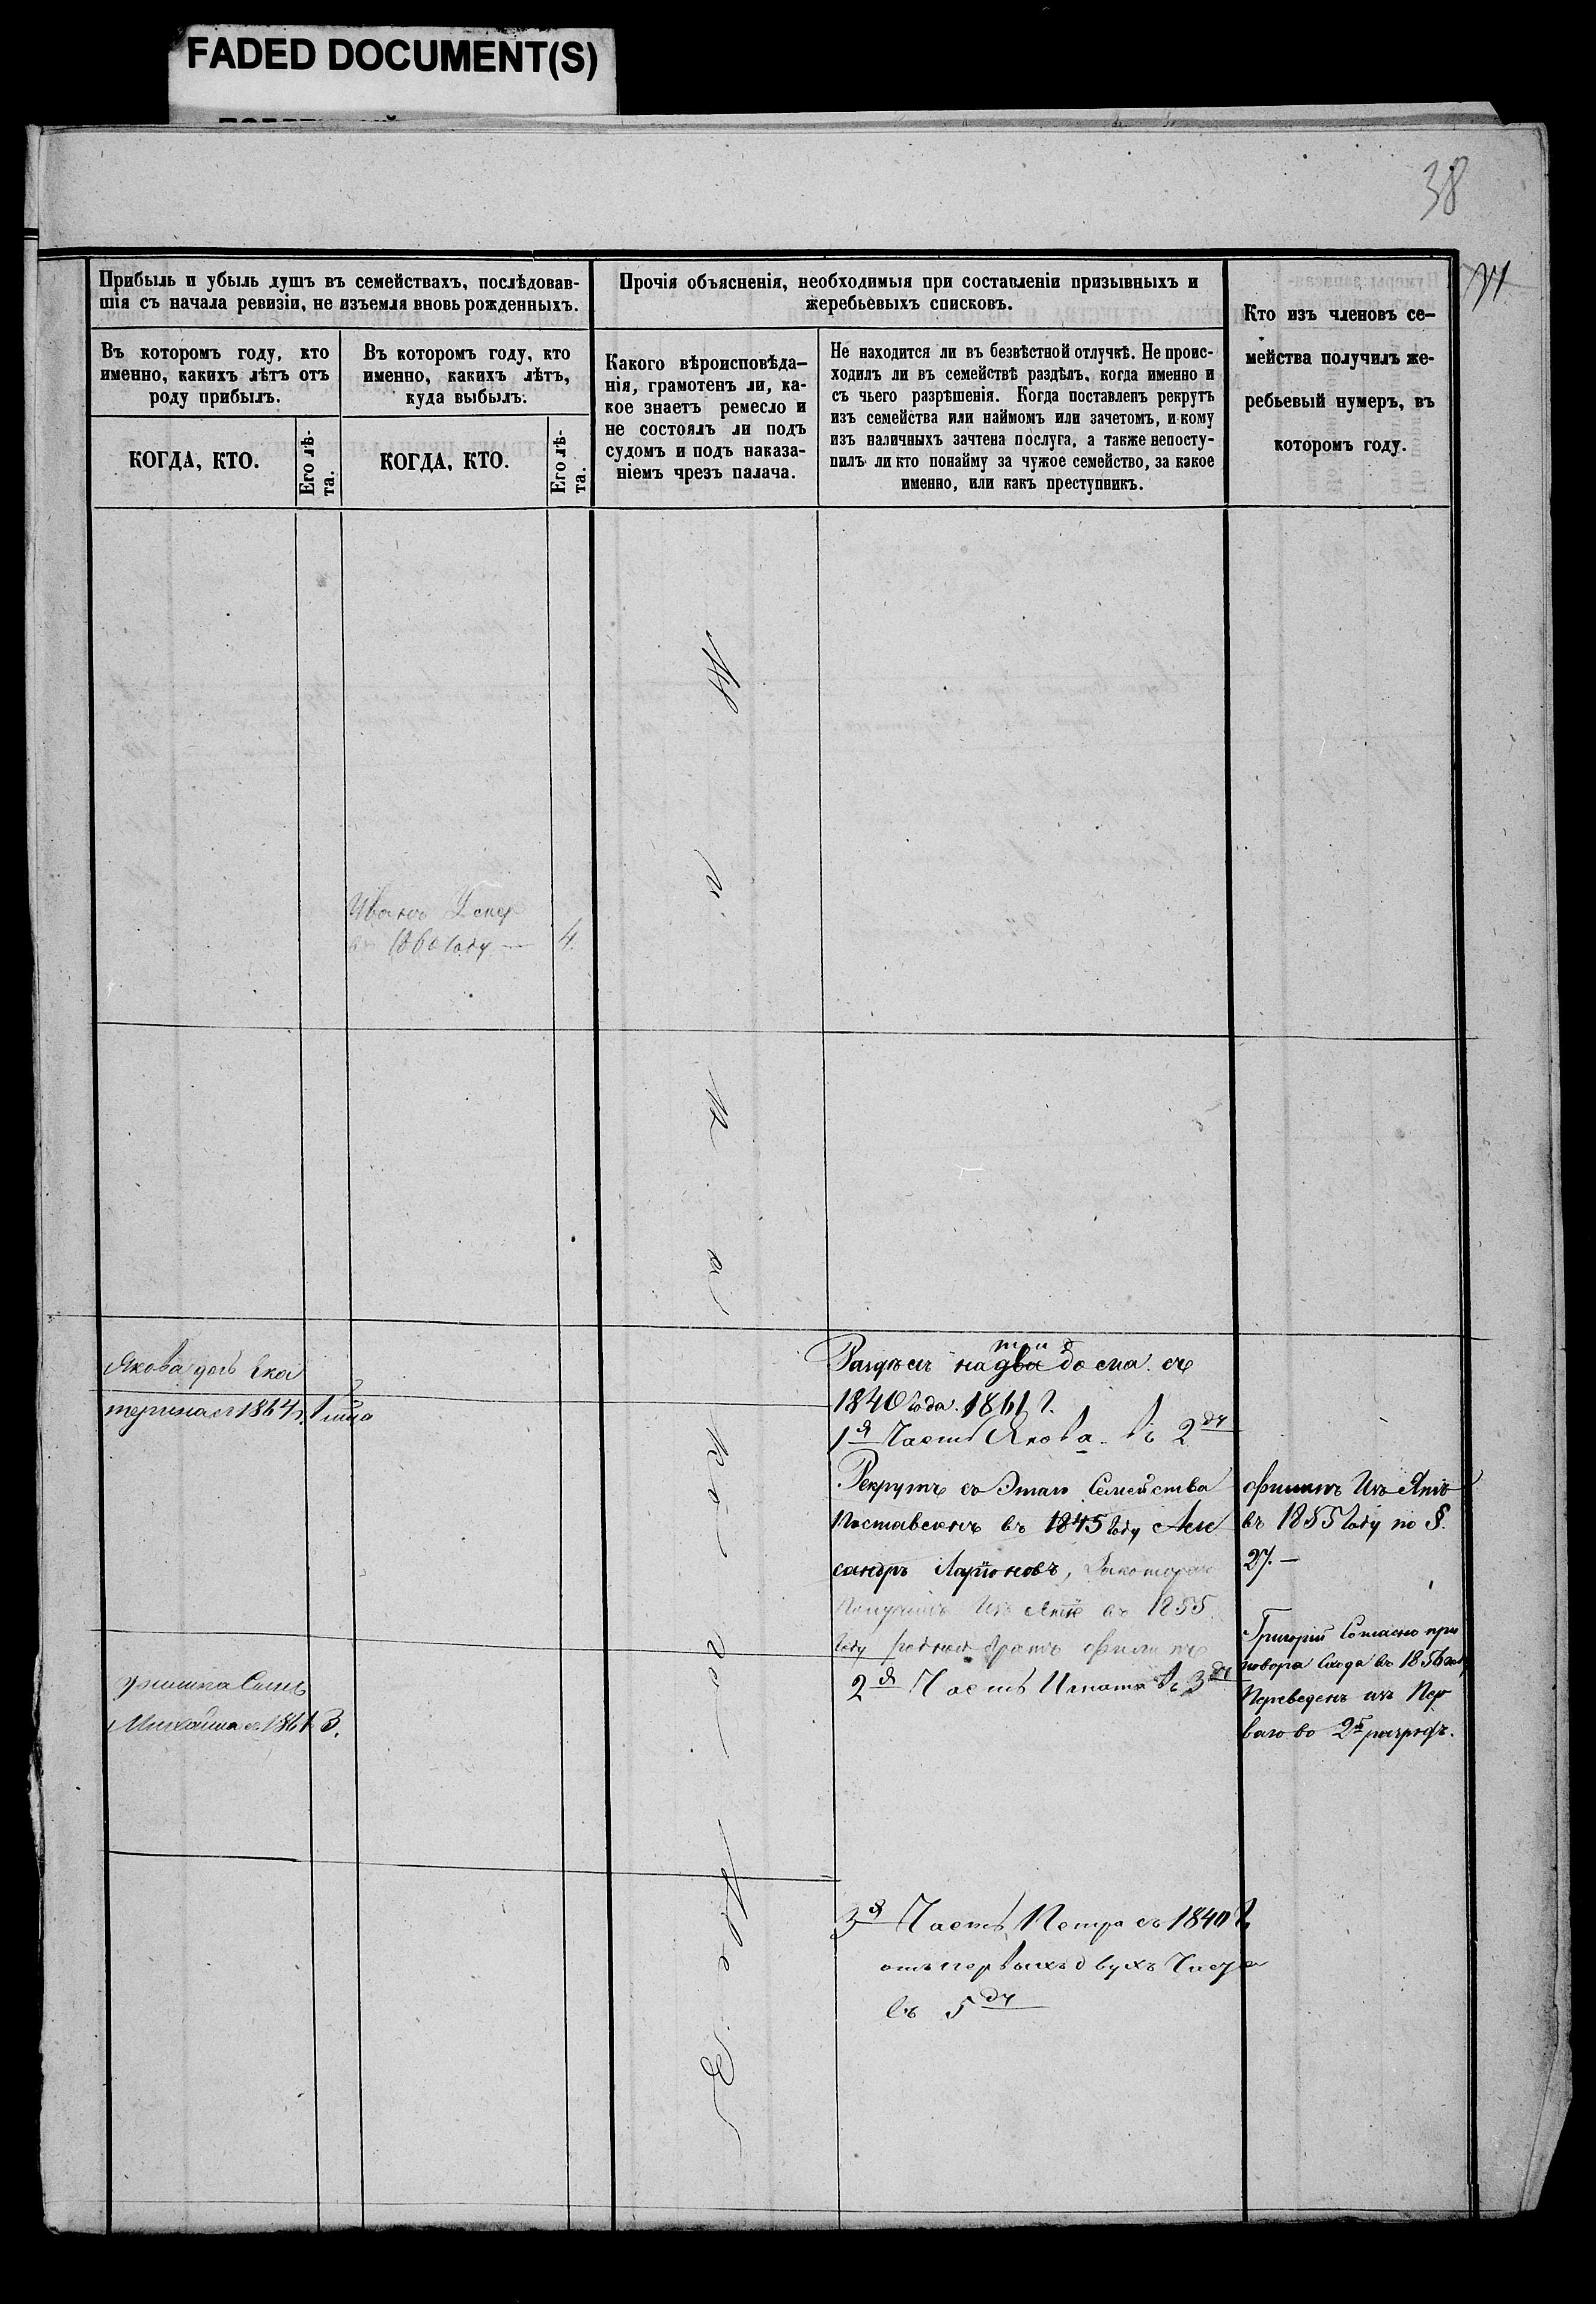 FADED DOCUMENT(S)
38
Прибыль и убыль душъ въ семействахъ, послѣдовав-
шія съ начала ревизіи, не изъемля вновь рожденныхъ.
Въ которомъ году, кто
именно, какихъ лѣтъ отъ
роду прибылъ.
КОГДА, КТО.
Его лѣ-
та.
Въ которомъ году, кто
именно, какихъ лѣтъ,
куда выбылъ.
КОГДА, КТО.
Его лѣ-
та.
Прочія объясненія, необходимыя при составленіи призывныхъ и
жеребьевыхъ списковъ.
Какого вѣроисповѣда-
нія, грамотенъ ли, ка-
кое знаетъ ремесло и
не состоялъ ли подъ
судомъ и подъ наказа-
ніемъ чрезъ палача.
Не находится ли въ безвѣстной отлучкѣ. Не проис-
ходилъ ли въ семействѣ раздѣлъ, когда именно и
съ чьего разрѣшенія. Когда поставленъ рекрутъ
изъ семейства или наймомъ или зачетомъ, и кому
изъ наличныхъ зачтена послуга, а также непосту-
пилъ ли кто понайму за чужое семейство, за какое
именно, или какъ преступникъ.
Кто изъ членовъ се-
мейства получилъ же-
ребьевый нумеръ, въ
которомъ году.
Иванъ Умер
въ 1860 Году — 4.
Якова дочь Ека
терина съ 1864 г.
Михайла съ 1861 3.
три
Раздѣлъ на два дома съ
1840 Года. 1861 г.
1я Часть Якова въ 2
Рекрутъ съ Этаго Семейства
Поставленъ въ 1845 Году Алек
сандръ Ларіоновъ,
въ 1855
Году родной братъ Филиппъ
2я Часть Игната въ 3
3я Часть Петра съ 1840 г
отъ первыхъ двухъ Часте
въ 5
Филиппъ
въ 1855 Году по §.
27. —
Григорій Согласно при
говора Схода въ 1856
Переведенъ изъ Пер
ваго во 2й разрядъ.